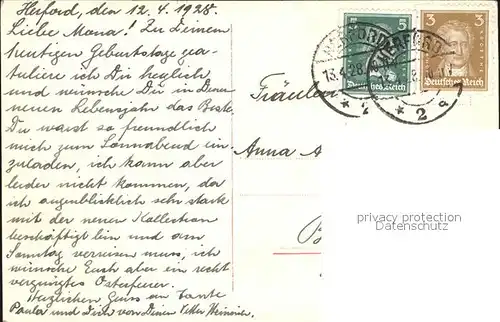 Herford, den 12.4.1928.
Liebe Mana! Zu Deinem
heutigen Geburtstage gra-
tuliere ich Dir herzlich
und wünsche Dir in Deinem
neuen Lebensjahr das Beste.
Du warst so freundlich
mich zum Sonnabend ein-
zuladen, ich kann aber
leider nicht kommen, da
ich augenblicklich sehr stark
mit der neuen Kollektion
beschäftigt bin und am
Sonntag verreisen muss, ich
wünsche Euch aber ein recht
vergnügtes Osterfeier.
Herzlichen Gruss an Tante
Paula und Dich von Deinem Vetter Heinrich.
5 5
3 3
Deutsches Reich
Deutsches Reich
HERFORD
13.4.28
* 2
HERFORD
* 2 a
Fräulein
Anna A
privacy protection
Datenschutz